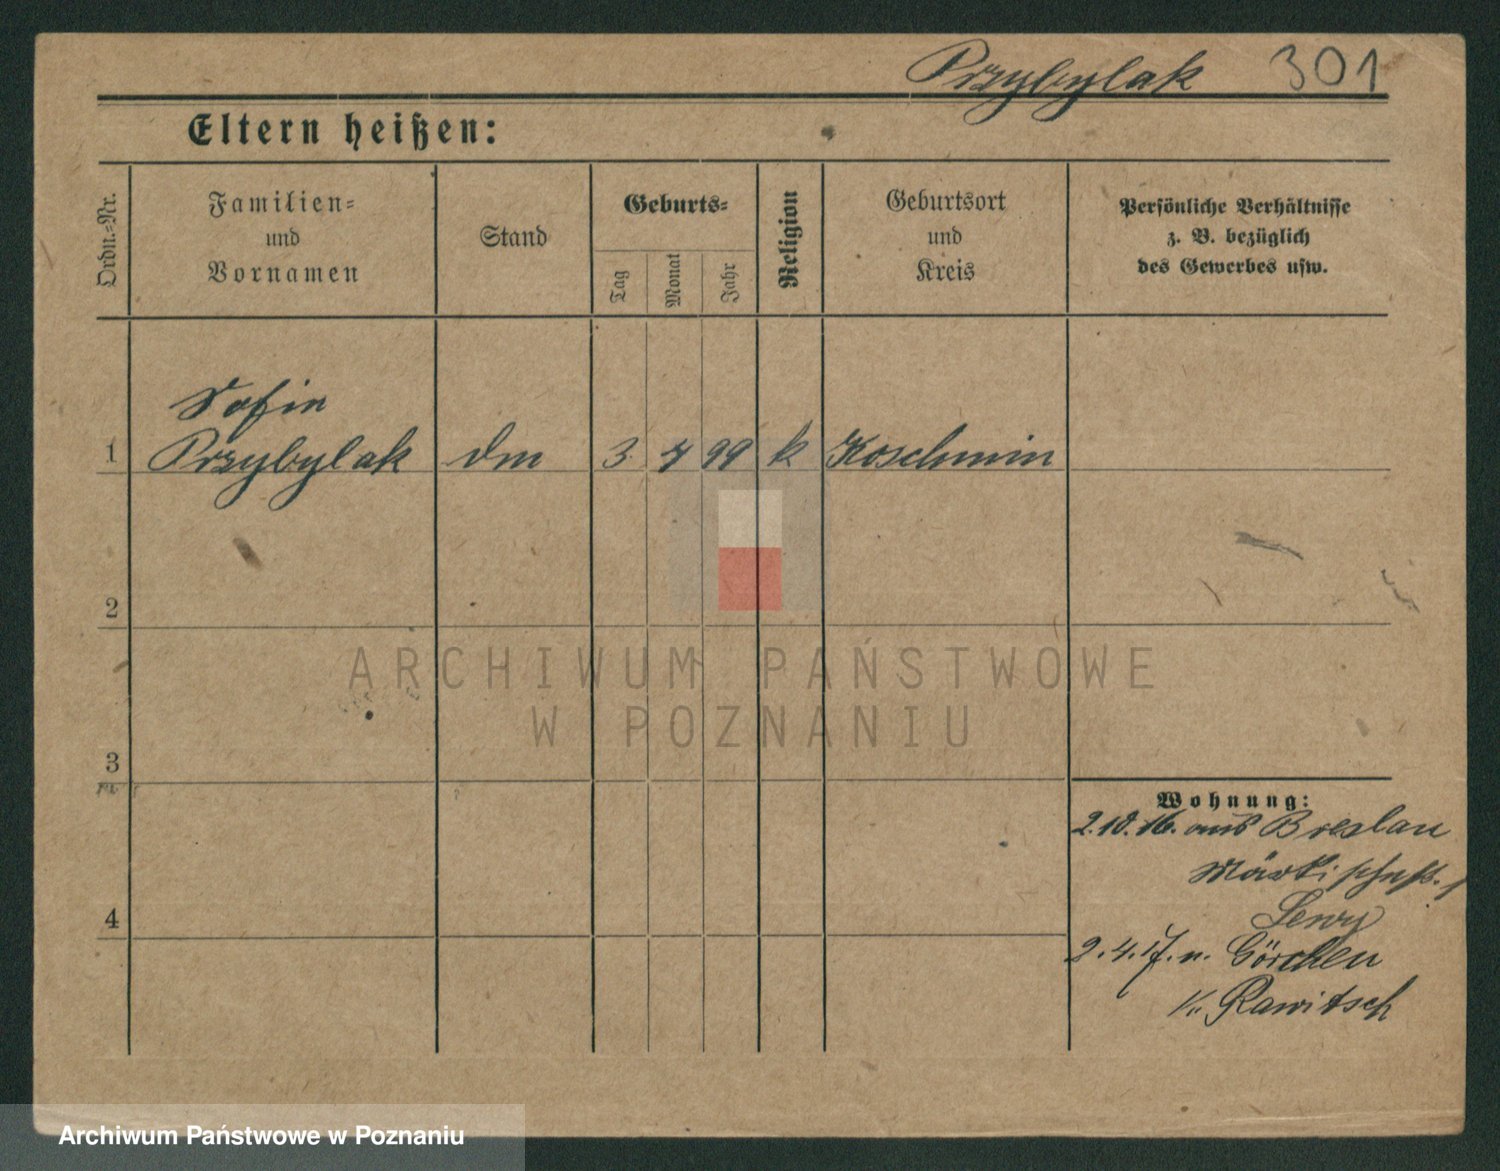 Przybylak 301
Eltern heißen:
Ordn.-Nr.
Familien-
und
Vornamen
Stand
Geburts-
Tag
Monat
Jahr
Religion
Geburtsort
und
Kreis
Persönliche Verhältnisse
z. B. bezüglich
des Gewerbes usw.
Sofia
1 Przybylak dm 3. 7 99 k Koschmin
2
3
4
Wohnung:
2.10.16. aus Breslau
2.4.17. n. Görchen
Kr. Rawitsch
ARCHIWUM PAŃSTWOWE
W POZNANIU
Archiwum Państwowe w Poznaniu